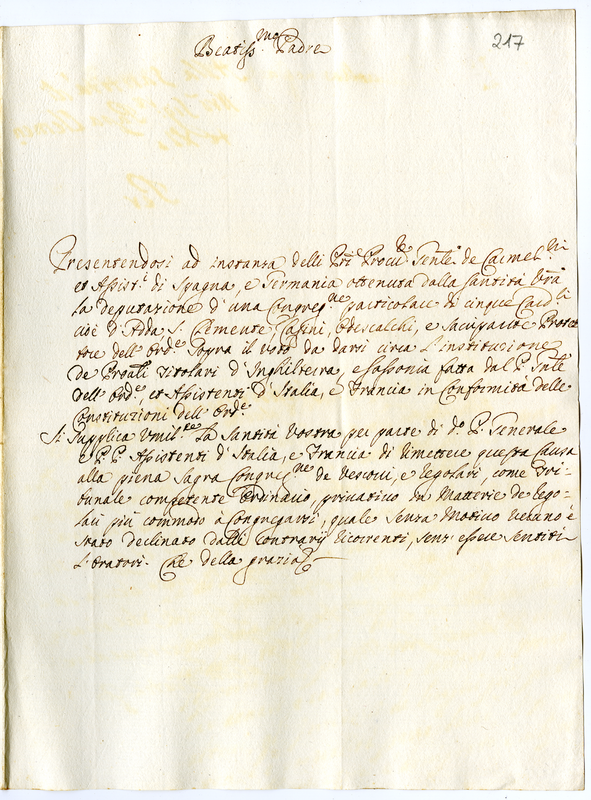 217
Beatiss.mo Padre
Presentendosi ad instanza delli PPri Procu.re Gen̄le de Carmel.ni
et Assist.i di Spagna, e Germania ottenuta dalla Santità Vr̄a
la deputazione d'una Congreg.ne particolare di cinque Card.li
cioè d'Adda S. Clemente, Casini, Odescalchi, e Sacripante Protet
tore dell'Ord.e Sopra il Voto da darsi circa l'instituzione
de Prov̄ali Titolari d'Inghilterra, e Sassonia fatta dal P. Gn̄le
dell'Ord.e, et Assistenti d'Italia, e Francia in Conformità delle
Constituzioni dell'Ord.e
Si Supplica Vmil.te la Santità Vostra per parte di d.o P. Generale
e P.P. Assistenti d'Italia, e Francia di rimettere questa Causa
alla piena Sagra Congreg.ne de Vescovi, e Regolari, come Tri-
bunale competente Ordinario, privativo in Matterie de Rego-
lari più commodo à Congregarsi, quale senza Motivo veruno è
stato declinato dalli Contrarij Ricorrenti, senz'essere Sentiti
l'Oratori. Che della grazia